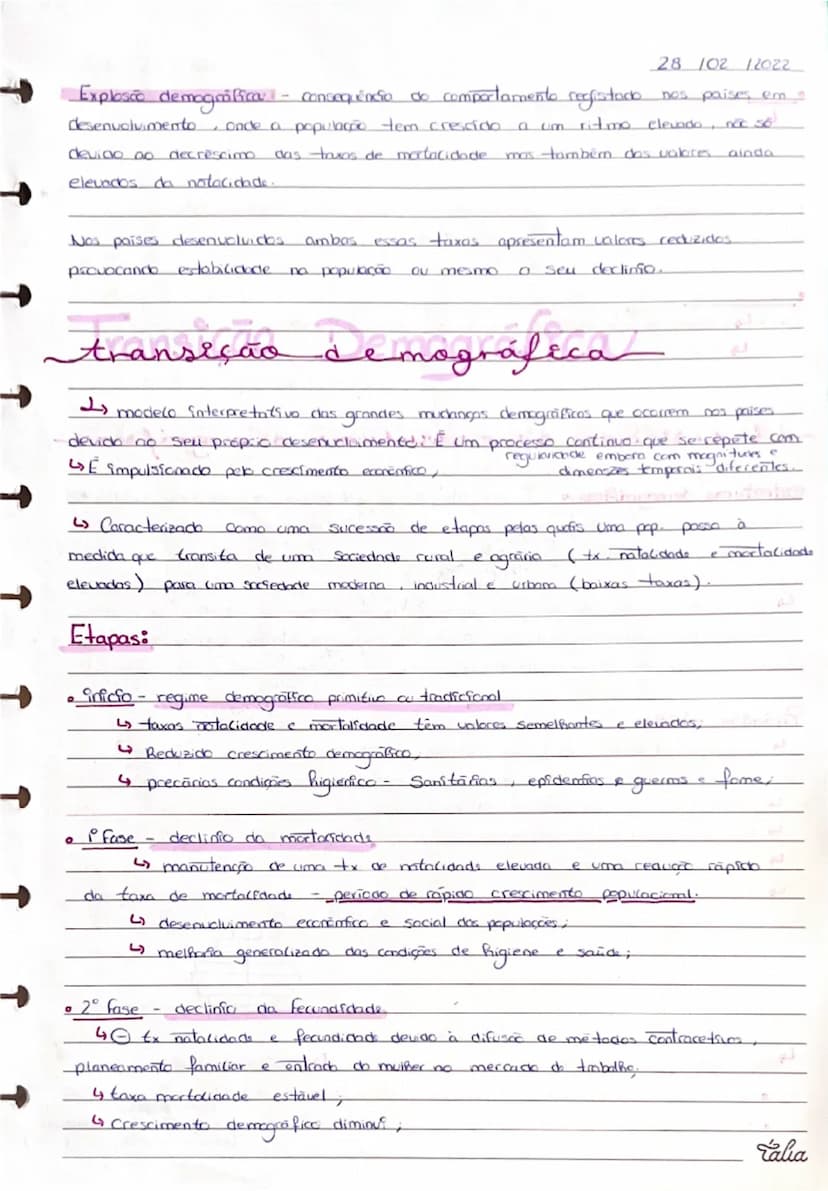 28 /02 /2022
Explosão demográfica - consequência do comportamento registado nos países em
desenvolvimento, onde a população tem crescido a um ritmo elevado, não só
devido ao decréscimo das taxas de mortalidade mas também dos valores ainda
elevados da natalidade.
Nos países desenvolvidos ambas essas taxas apresentam valores reduzidos
provocando estabilidade na população ou mesmo o seu declínio.
Transição Demográfica
↳ modelo interpretativo das grandes mudanças demográficas que ocorrem nos países
devido ao seu próprio desenvolvimento. É um processo contínuo que se repete com
regularidade embora com magnitudes e
↳ É impulsionado pelo crescimento económico, dimensões temporais diferentes.
↳ Caracterizado como uma sucessão de etapas pelas quais uma pop. passa à
medida que transita de uma sociedade rural e agrária (tx. natalidade e mortalidade
elevadas) para uma sociedade moderna, industrial e urbana (baixas taxas).
Etapas:
• início - regime demográfico primitivo ou tradicional
↳ taxas natalidade e mortalidade têm valores semelhantes e elevados;
↳ Reduzido crescimento demográfico,
↳ precárias condições higiénico - Sanitárias, epidemias e guerras e fome;
• 1ª Fase - declínio da mortalidade
↳ manutenção de uma tx de natalidade elevada e uma redução rápida
da taxa de mortalidade - período de rápido crescimento populacional.
↳ desenvolvimento económico e social das populações;
↳ melhoria generalizada das condições de higiene e saúde;
• 2ª fase - declínio da fecundidade
↳ ⊖ tx natalidade e fecundidade devido à difusão de métodos contracetivos,
planeamento familiar e entrada da mulher no mercado do trabalho;
↳ taxa mortalidade estável;
↳ Crescimento demográfico diminui;
Tália